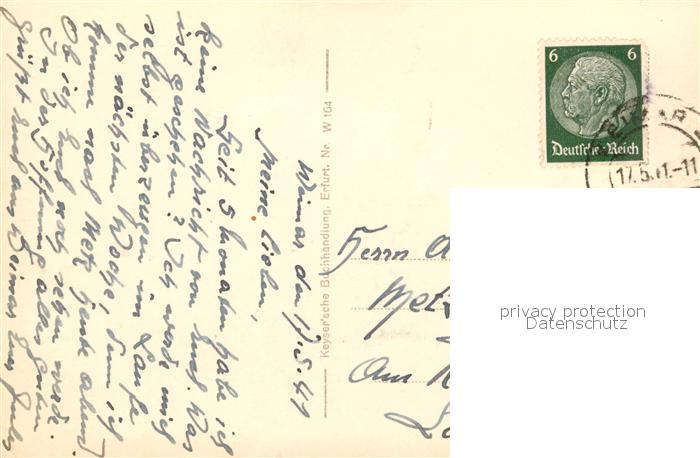 Weimar den 17.5.41
Meine Lieben,
Seit 5 Monaten habe ich
keine Nachricht von Euch. Was
ist geschehen? Ich werde mich
selbst überzeugen im Laufe
der nächsten Woche, denn ich
komme nach Metz heute abend.
Ob ich Euch noch sehen werde.
In der Hoffnung alles guten
grüßt Euch aus Weimar Eur
Keyser'sche Buchhandlung, Erfurt. Nr. W 164
6 6
Deutsches Reich
17.5.41.-11
Herrn
Metz
Am
privacy protection
Datenschutz